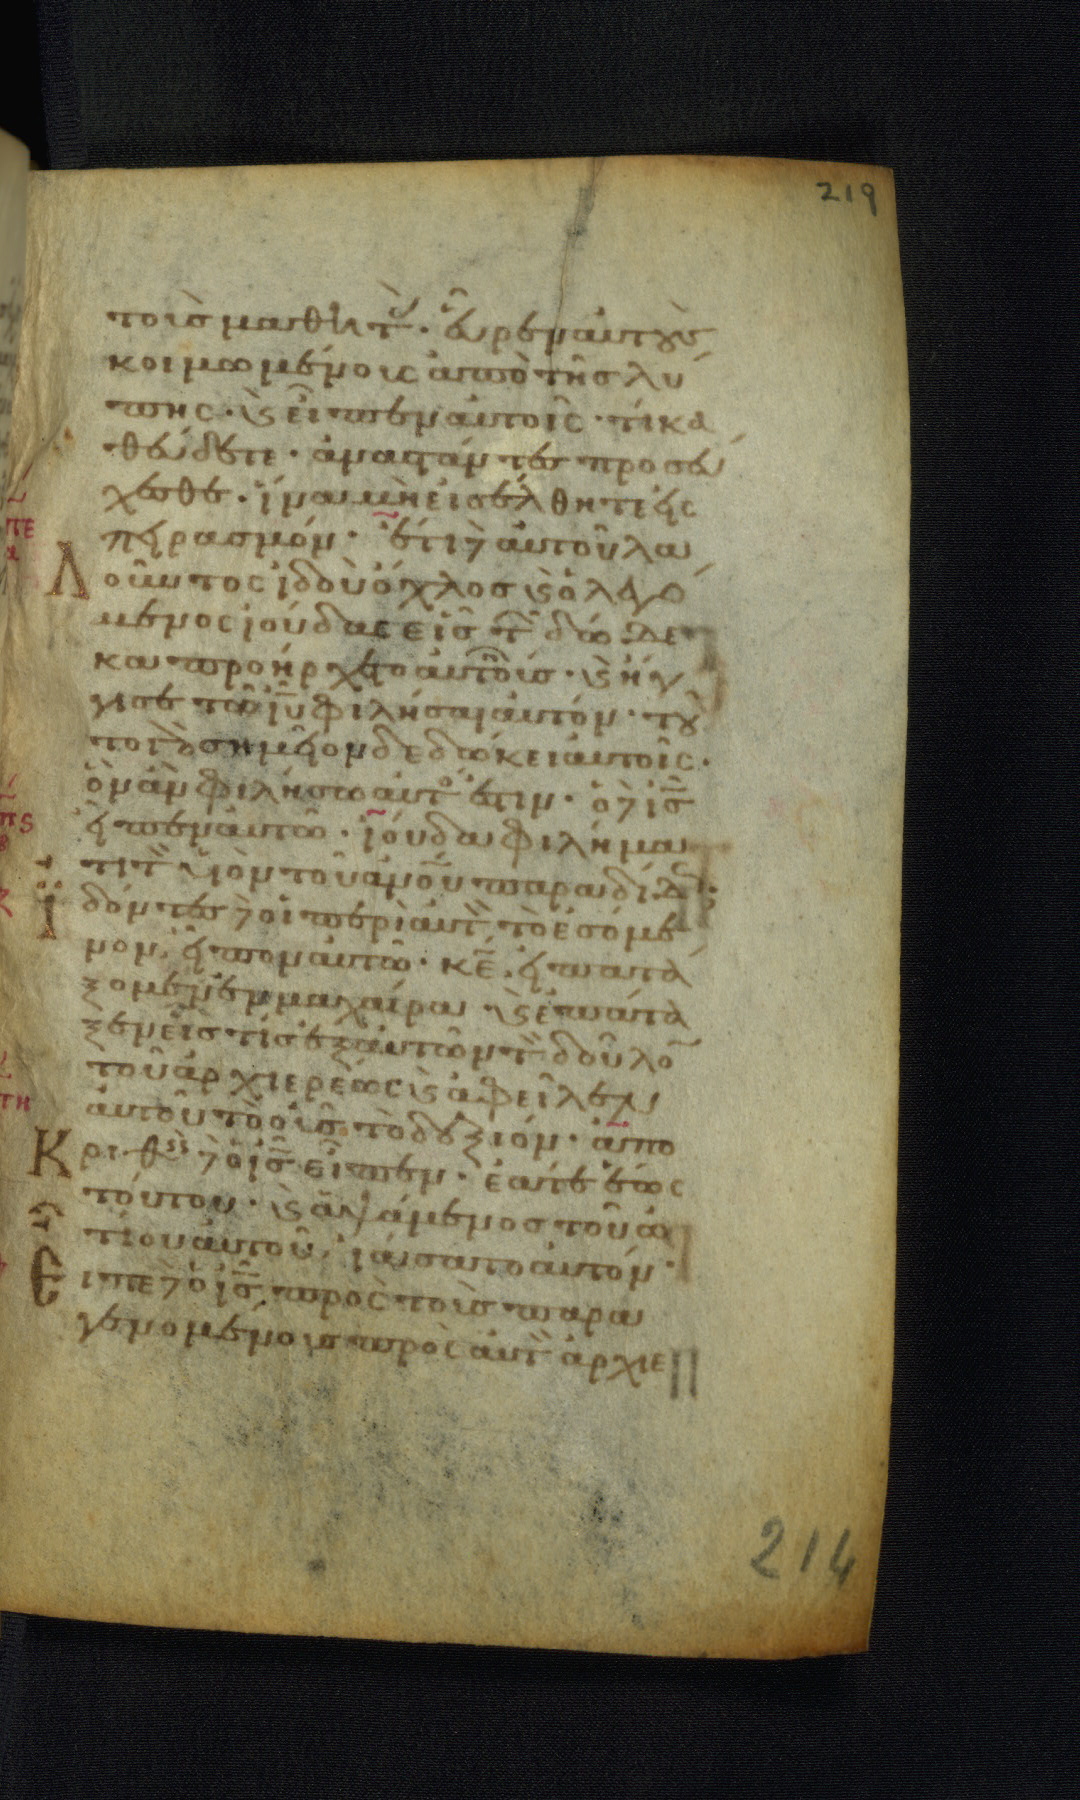 219
τοὺς μαθητ. εὗρεν αὐτοὺς
κοιμωμένους ἀπὸ τῆς λύ
πης. ϗ εἶπεν αὐτοῖς. τί κα
θεύδετε. ἀναστάντες προσεύ
χεσθε. ἵνα μὴ εἰσέλθητε εἰς
πειρασμόν. ἔτι δὲ αὐτοῦ λα
λοῦντος ἰδοὺ ὄχλος ϗ ὁ λεγό
μενος ἰούδας εἷς τ δώδε
κα προήρχετο αὐτοῖς. ϗ ἤγ
γισε τῶ ιυ φιλῆσαι αὐτόν. τοῦ
το σημεῖον δεδώκει αὐτοῖς.
ὃν ἂν φιλήσω αὐτός ἐστιν. ὁ δὲ ις
εἶπεν αὐτῶ. ἰούδα φιλήμα
τι τ υἱὸν τοῦ ανου παραδίδως;
ἰδόντες δὲ οἱ περὶ αὐτ τὸ ἐσόμε
νον, εἶπον αὐτῶ. κε, εἰ πατά
ξομεν ἐν μαχαίρα. ϗ ἐπάτα
ξεν εἷς τίς ἐξ αὐτῶν τ δοῦλον
τοῦ ἀρχιερέως ϗ ἀφεῖλεν
αὐτοῦ τὸ οὖς τὸ δεξιόν. ἀπο
κριθεὶς δὲ ὁ ις εἶπεν. ἐᾶτε ἕως
τούτου. ϗ ἁψάμενος τοῦ ὠ
τίου αὐτοῦ, ἰάσατο αὐτόν.
εἶπε δὲ ὁ ις πρὸς τοὺς παρα
γενομένους πρὸς αὐτ ἀρχιε
214